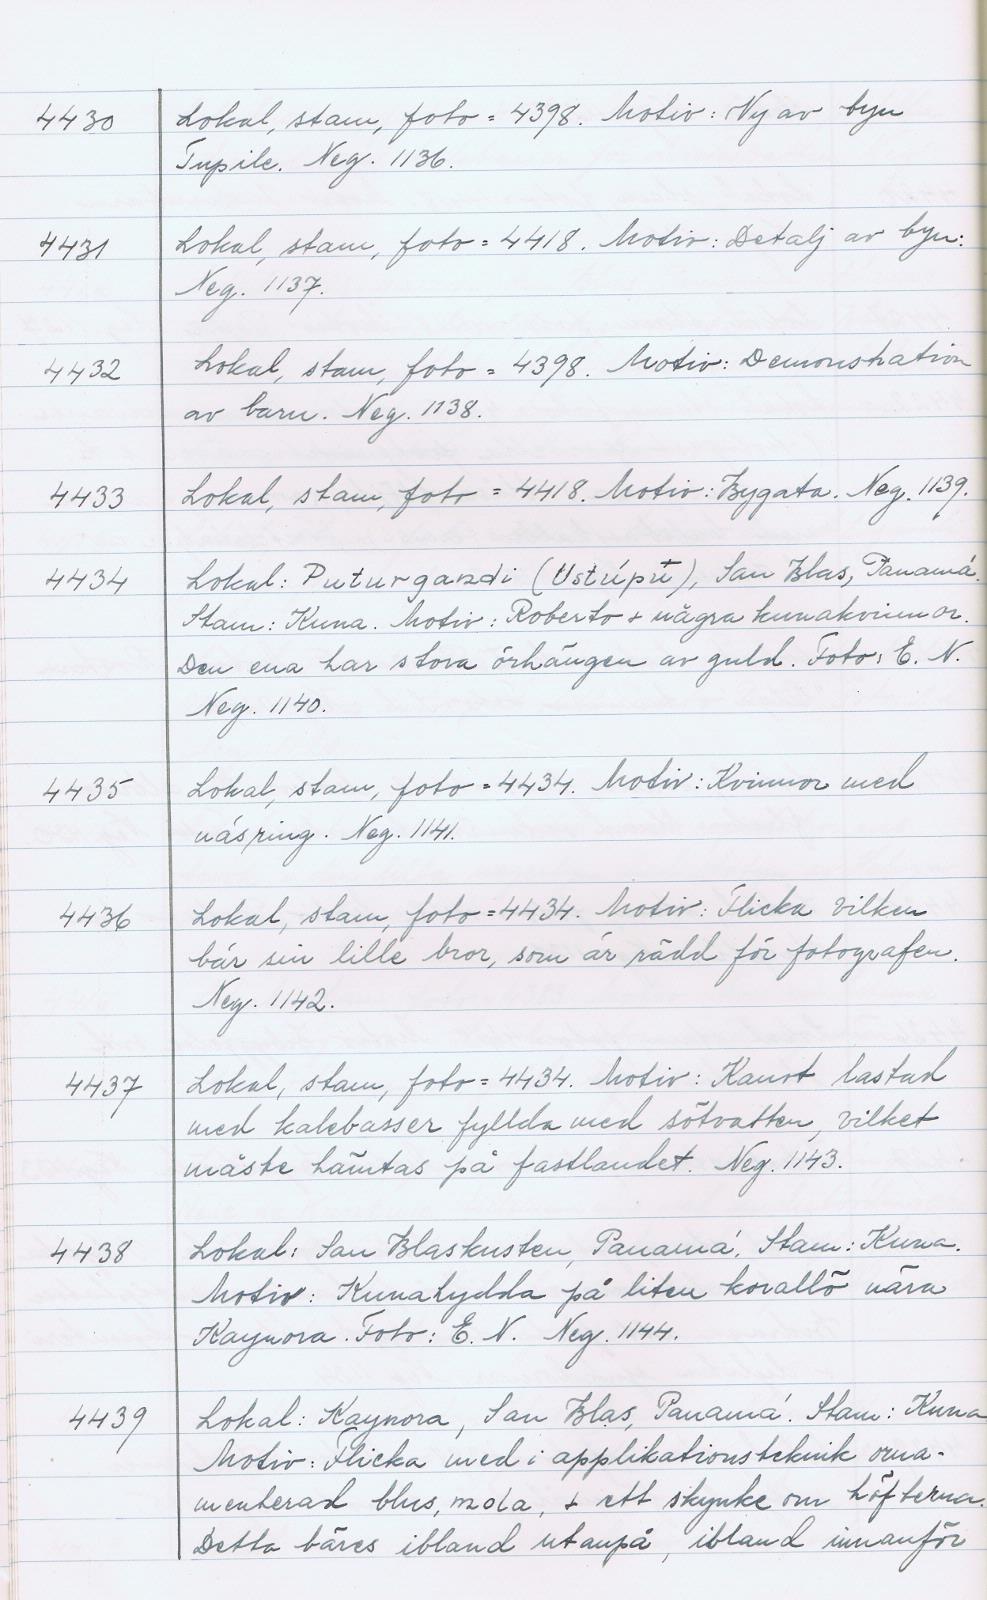 4430 Lokal, stam, foto = 4398. Motiv: Ny av byn
Tupile. Neg. 1136.
4431 Lokal, stam, foto = 4418. Motiv: Detalj av byn.
Neg. 1137.
4432 Lokal, stam, foto = 4398. Motiv: Demonstration
av barn. Neg. 1138.
4433 Lokal, stam, foto = 4418. Motiv: Bygata. Neg. 1139.
4434 Lokal: Puturgandi (Ustúpu), San Blas, Panamá.
Stam: Kuna. Motiv: Roberto + några kunakvinnor.
Den ena har stora örhängen av guld. Foto: E. N.
Neg. 1140.
4435 Lokal, stam, foto = 4434. Motiv: Kvinnor med
näsring. Neg. 1141.
4436 Lokal, stam, foto = 4434. Motiv: Flicka vilken
bär sin lille bror, som är rädd för fotografen.
Neg. 1142.
4437 Lokal, stam, foto = 4434. Motiv: Kanot lastad
med kalebasser fyllda med sötvatten, vilket
måste hämtas på fastlandet. Neg. 1143.
4438 Lokal: San Blaskusten, Panamá. Stam: Kuna.
Motiv: Kunahydda på liten korallö nära
Kaynora. Foto: E. N. Neg. 1144.
4439 Lokal: Kaynora, San Blas, Panamá. Stam: Kuna
Motiv: Flicka med i applikationsteknik orna-
menterad blus, mola, + ett skynke om höfterna.
Detta bäres ibland utanpå, ibland innanför